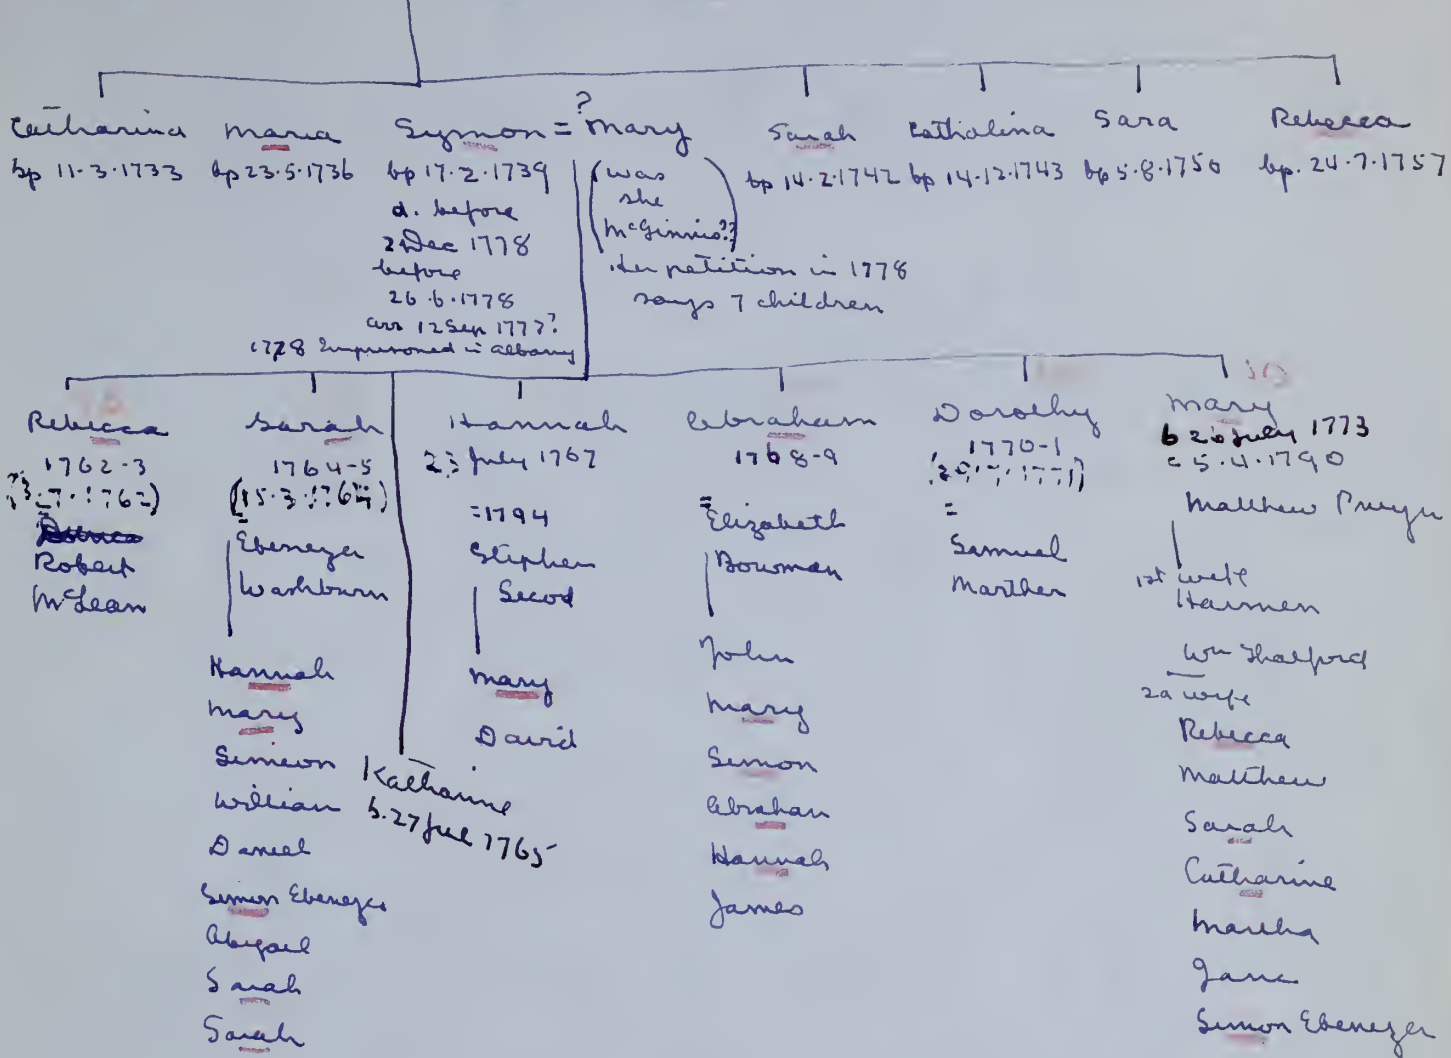 Catharina
bp 11.3.1733
Maria
bp 23.5.1736
Symon = ? Mary
bp 17.2.1739
d. before
2 Dec 1778
before
26.6.1778
arr 12 Sep 1777?
1778 Imprisoned in Albany
(was
she
McGinnis??)
Her petition in 1778
says 7 children
Sarah
bp 14.2.1742
Catholina
bp 14.12.1743
Sara
bp 5.8.1750
Rebecca
bp. 24.7.1757
Rebecca
1762-3
.7.1762)
=
Robert
McLean
Sarah
1764-5
(15.3.1764)
=
Ebenezer
Washburn
Hannah
Mary
Simeon
William
Daniel
Simon Ebenezer
Abigail
Sarah
Sarah
Katharine
b. 27 Jul 1765
Hannah
23 July 1767
=1794
Stephen
Secod
Mary
David
Abraham
1768-9
=
Elizabeth
Bowman
John
Mary
Simon
Abraham
Hannah
James
Dorothy
1770-1
=
Samuel
Marther
10
Mary
b 26 July 1773
= 5.4.1790
Matthew Pruyn
1st wife
Harmen
Wm Thalford
2d wife
Rebecca
Matthew
Sarah
Catharine
Martha
Jane
Simon Ebenezer